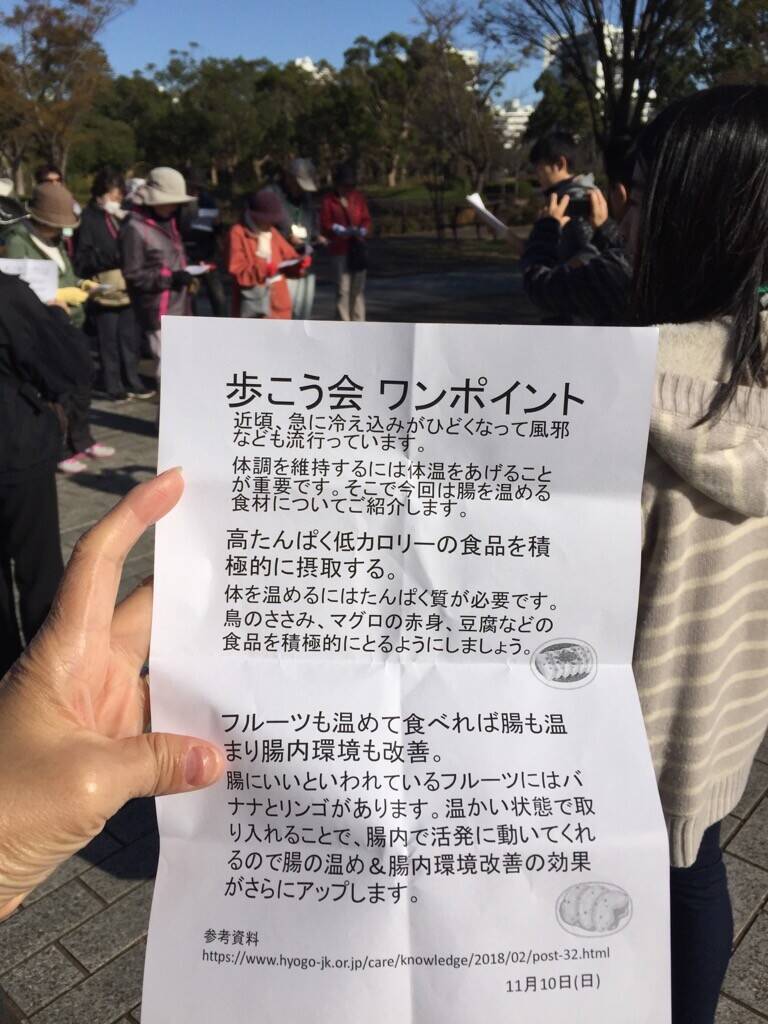 歩こう会 ワンポイント
近頃、急に冷え込みがひどくなって風邪
なども流行っています。
体調を維持するには体温をあげること
が重要です。そこで今回は腸を温める
食材についてご紹介します。
高たんぱく低カロリーの食品を積
極的に摂取する。
体を温めるにはたんぱく質が必要です。
鳥のささみ、マグロの赤身、豆腐などの
食品を積極的にとるようにしましょう。
フルーツも温めて食べれば腸も温
まり腸内環境も改善。
腸にいいといわれているフルーツにはバ
ナナとリンゴがあります。温かい状態で取
り入れることで、腸内で活発に動いてくれ
るので腸の温め&腸内環境改善の効果
がさらにアップします。
参考資料
https://www.hyogo-jk.or.jp/care/knowledge/2018/02/post-32.html
11月10日(日)